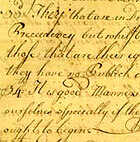 They that are in
Preceedency but whilst
those that are their
they have no Publick
It is good Manners
ourselves especially if
ought to begin